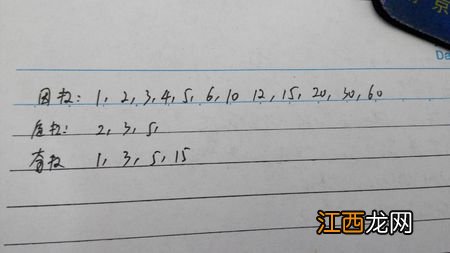 京
Da
因数: 1, 2, 3, 4, 5, 6, 10 12, 15, 20, 30, 60
质数: 2, 3, 5,
奇数 1, 3, 5, 15
江西龙网